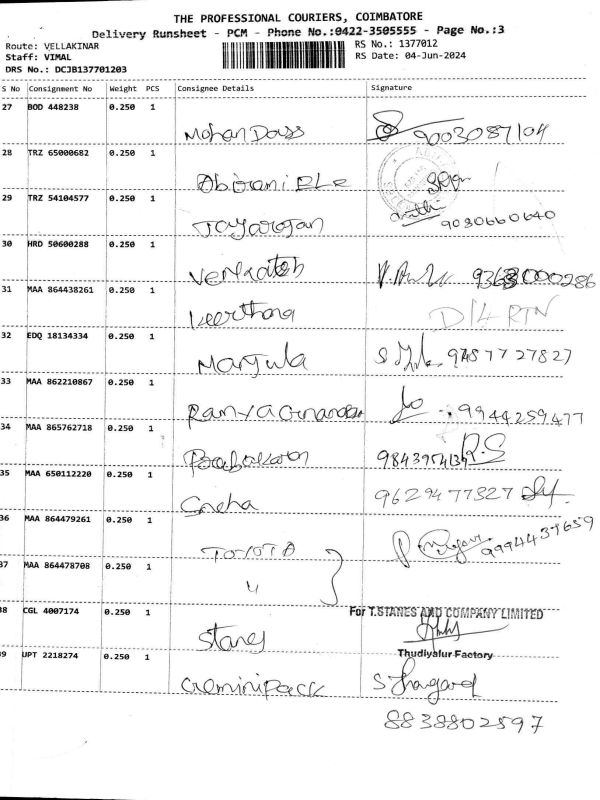 THE PROFESSIONAL COURIERS, COIMBATORE
Delivery Runsheet - PCM - Phone No.:0422-3505555 - Page No.:3
Route: VELLAKINAR
Staff: VIMAL
DRS No.: DCJB137701203
RS No.: 1377012
RS Date: 04-Jun-2024
S No Consignment No Weight PCS Consignee Details Signature
27 BOD 448238 0.250 1
Mohan Dass 9003087104
28 TRZ 65000682 0.250 1
Abirami ELE
29 TRZ 54104577 0.250 1
Jayarajan 9030660640
30 HRD 50600288 0.250 1
Venkatesh
31 MAA 864438261 0.250 1
Keerthana D/L RTN
32 EDQ 18134334 0.250 1
Manjula 9787727827
33 MAA 862210867 0.250 1
Ramya 9944259477
34 MAA 865762718 0.250 1
Prabakaran R.S
35 MAA 650112220 0.250 1
Sneha 9629477327
36 MAA 864479261 0.250 1
TOYOTA 9994439659
37 MAA 864478708 0.250 1
"
38 CGL 4007174 0.250 1
For T.STANES AND COMPANY LIMITED
Stanes
Thudiyalur Factory
39 UPT 2218274 0.250 1
Geminipack
8838802597